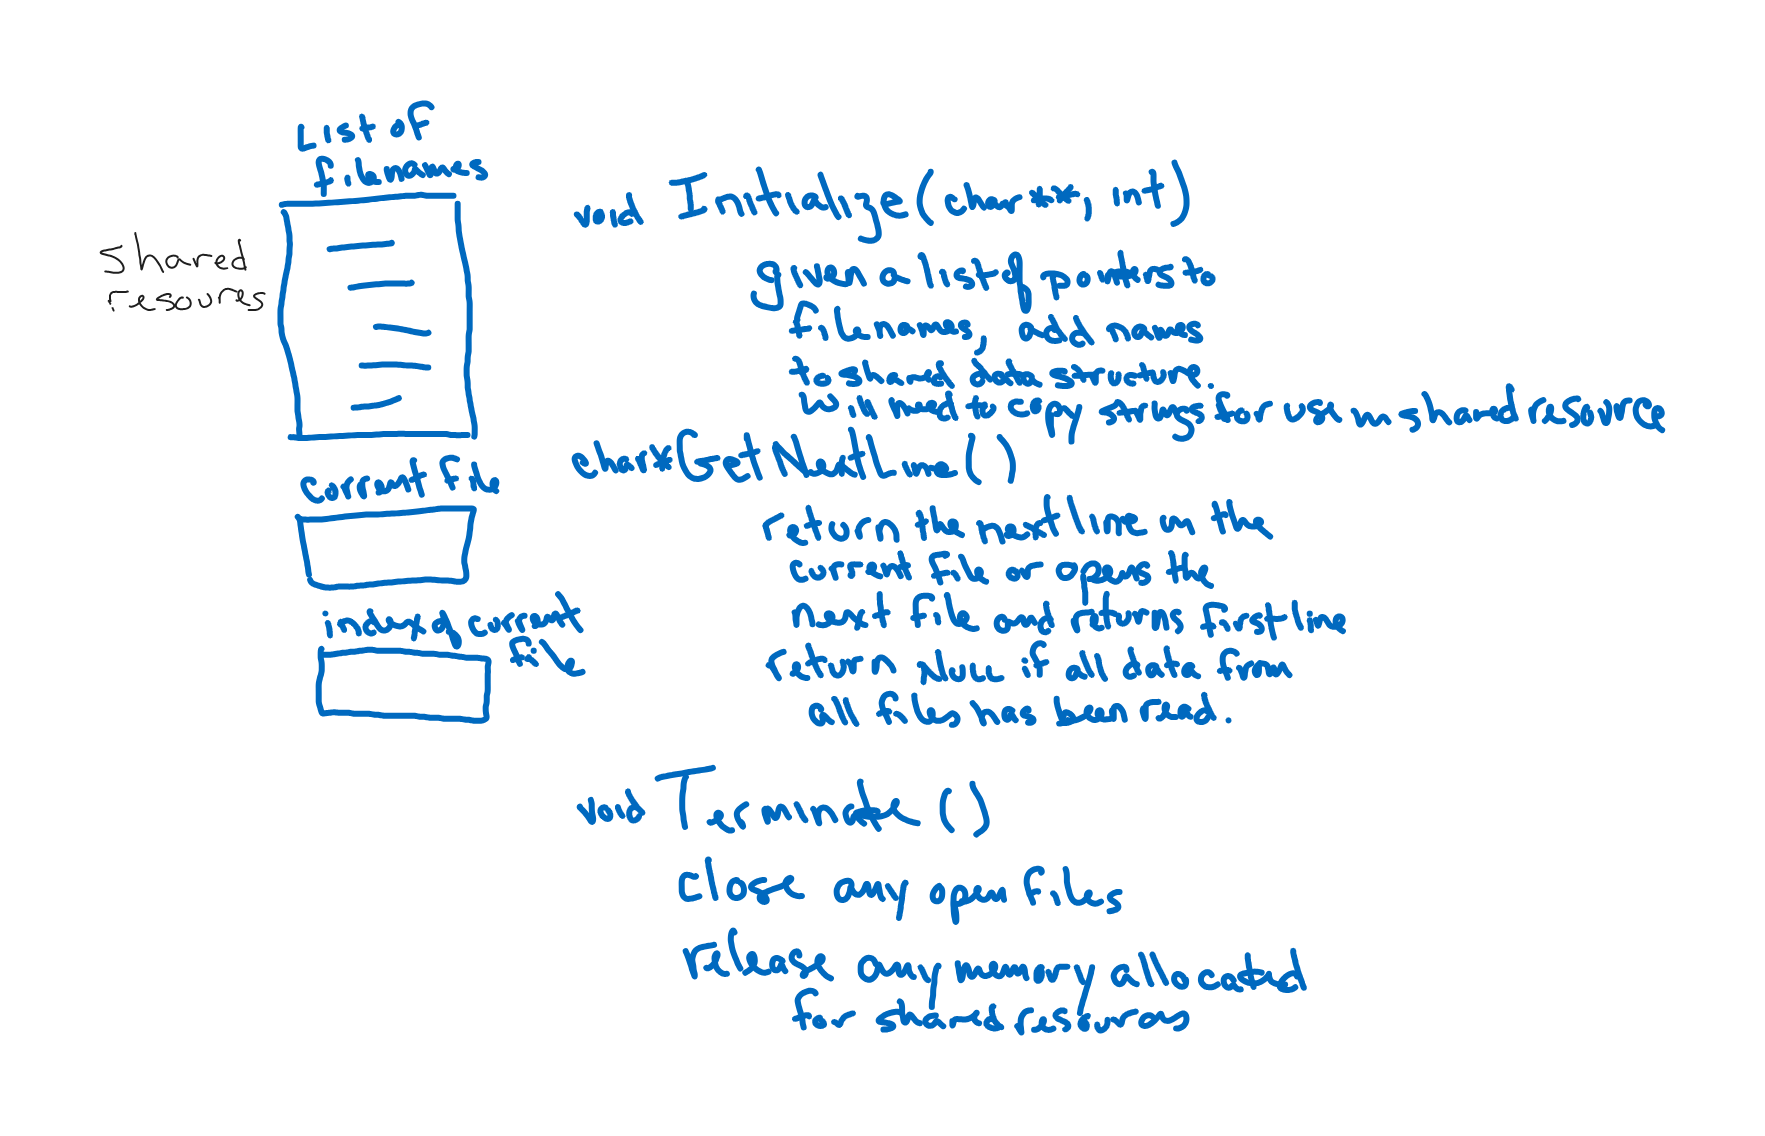 List of
filenames
shared
resoures
current file
index of current
file
void Initialize(char**, int)
given a list of pointers to
filenames, add names
to shared data structure.
will need to copy strings for use in shared resource
char* GetNextLine()
return the next line in the
current file or opens the
next file and returns first line
return NULL if all data from
all files has been read.
void Terminate()
close any open files
release any memory allocated
for shared resources